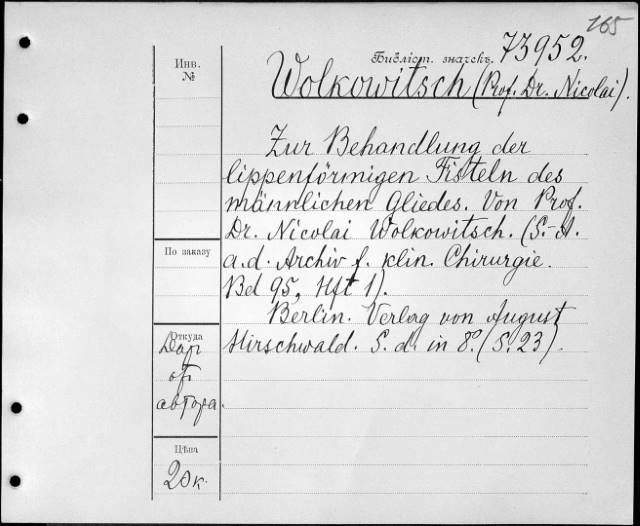 165
Библіот. значекъ. 73952.
Инв.
№
Wolkowitsch (Prof. Dr. Nicolai).
Zur Behandlung der
lippenförmigen Fisteln des
männlichen Gliedes. Von Prof.
Dr. Nicolai Wolkowitsch. (S.-A.
a.d. Archiv f. klin. Chirurgie.
Bd 95, Hft 1).
Berlin. Verlag von August
Hirschwald. S. d. in 8°. (S. 23).
По заказу
Откуда
Дар
от
автора.
Цѣна
20к.